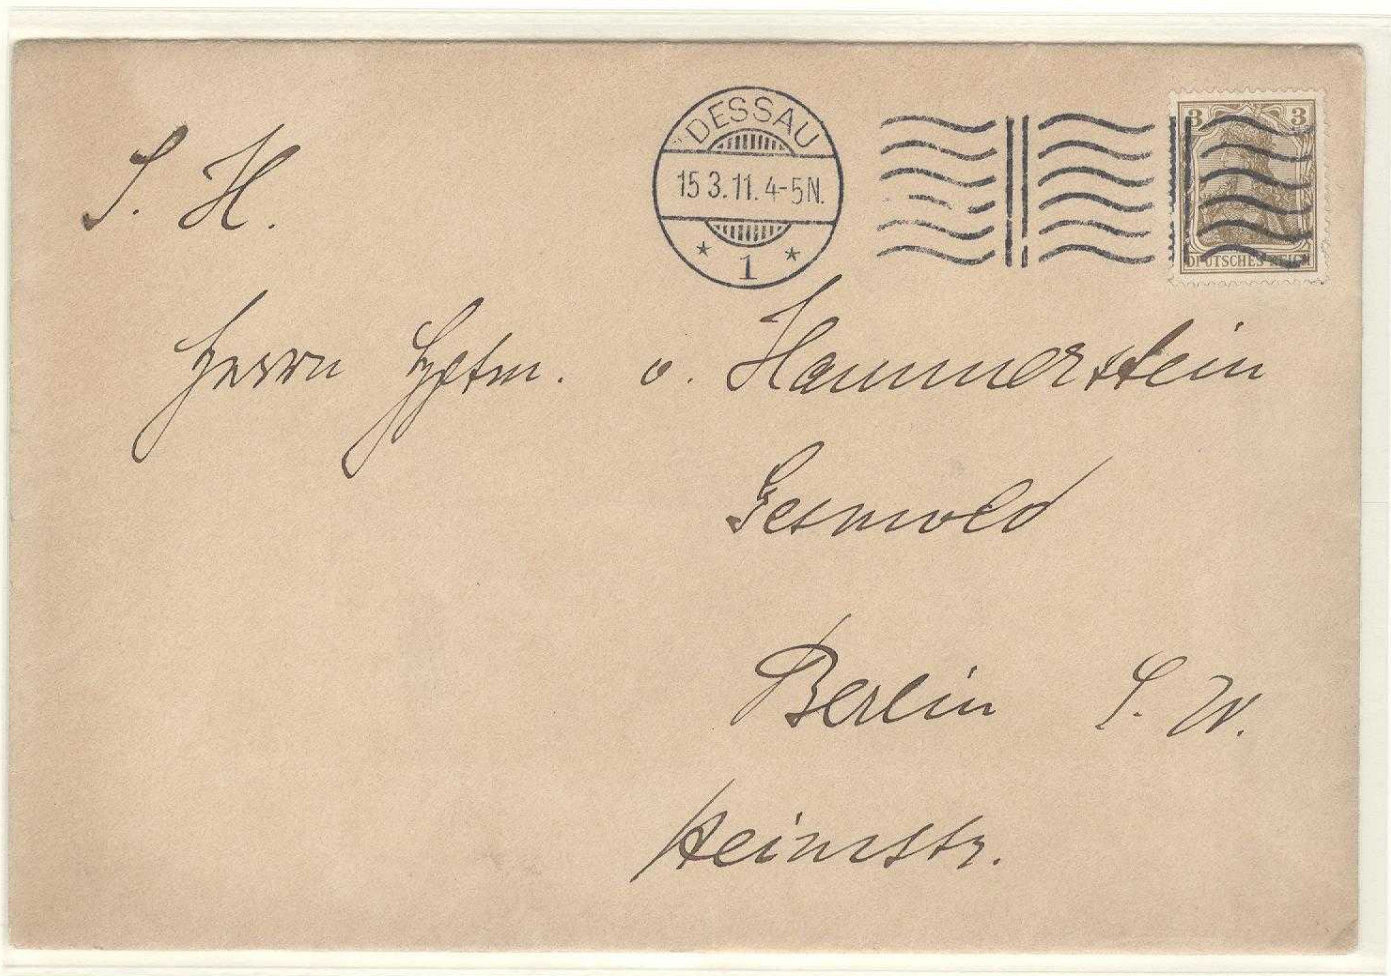 DESSAU
15 3.11. 4-5N.
* 1 *
3 3
DEUTSCHES REICH
S. H.
Herrn Hptm. v. Hammerstein
Gesmold
Berlin S. W.
Heimstr.